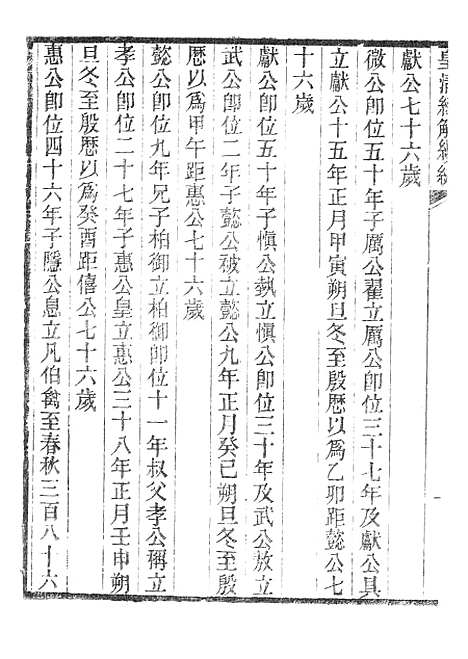 皇清經解續編
獻公七十六歲
微公卽位五十年子厲公翟立厲公卽位三十七年及獻公具
立獻公十五年正月甲寅朔旦冬至殷歷以爲乙卯距懿公七
十六歲
獻公卽位五十年子愼公埶立愼公卽位三十年及武公敖立
武公卽位二年子懿公被立懿公九年正月癸巳朔旦冬至殷
歷以爲甲午距惠公七十六歲
懿公卽位九年兄子柏御立柏御卽位十一年叔父孝公稱立
孝公卽位二十七年子惠公皇立惠公三十八年正月壬申朔
旦冬至殷歷以爲癸酉距僖公七十六歲
惠公卽位四十六年子隱公息立凡伯禽至春秋三百八十六